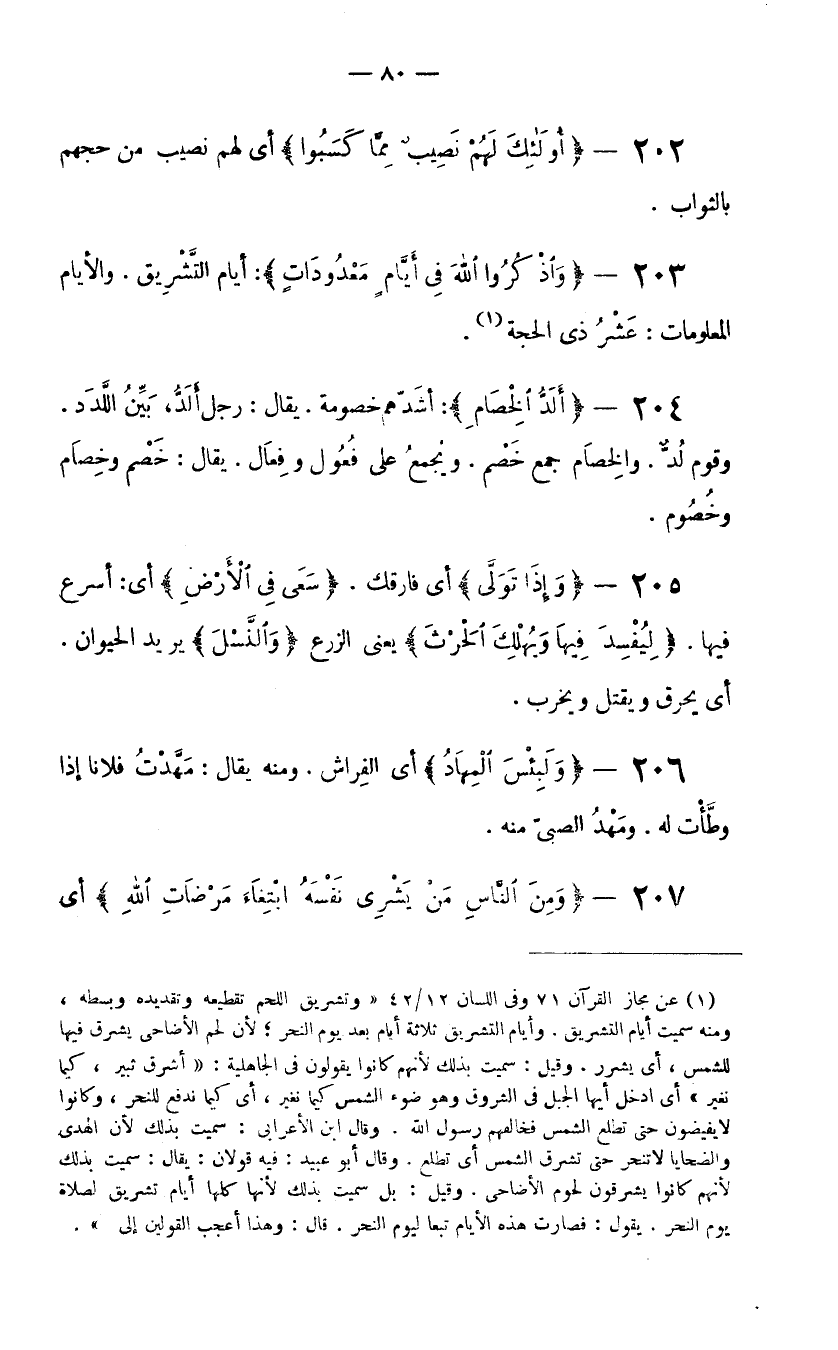 — ٨٠ —
٢٠٢ — ﴿ أُولَٰئِكَ لَهُمْ نَصِيبٌ مِمَّا كَسَبُوا ﴾ أى لهم نصيب من حجهم
بالثواب .
٢٠٣ — ﴿ وَٱذْكُرُوا ٱللهَ فِى أَيَّامٍ مَعْدُودَاتٍ ﴾: أيام التَّشْرِيق . والأيام
المعلومات : عَشْرُ ذى الحجة (١) .
٢٠٤ — ﴿ أَلَدُّ ٱلْخِصَامِ ﴾: أشدّهم خصومة . يقال : رجل أَلَدُّ، بَيِّنُ اللَّدَد .
وقوم لُدٌّ . والخِصَام جمع خَصْم . ويُجمعُ على فُعُول وفِعَال . يقال : خَصْم وخِصَام
وخُصُوم .
٢٠٥ — ﴿ وَإِذَا تَوَلَّى ﴾ أى فارقك . ﴿ سَعَى فِى ٱلْأَرْضِ ﴾ أى: أسرع
فيها . ﴿ لِيُفْسِدَ فِيهَا وَيُهْلِكَ ٱلْحَرْثَ ﴾ يعنى الزرع ﴿ وَٱلنَّسْلَ ﴾ يريد الحيوان .
أى يحرق ويقتل ويخرب .
٢٠٦ — ﴿ وَلَبِئْسَ ٱلْمِهَادُ ﴾ أى الفِراش . ومنه يقال : مَهَّدْتُ فلانا إذا
وطَّأْت له . ومَهْدُ الصبىّ منه .
٢٠٧ — ﴿ وَمِنَ ٱلنَّاسِ مَنْ يَشْرِى نَفْسَهُ ابْتِغَاءَ مَرْضَاتِ ٱللهِ ﴾ أى
(١) عن مجاز القرآن ٧١ وفى اللسان ٤٢/١٢ « وتشريق اللحم تقطيعه وتقديده وبسطه ،
ومنه سميت أيام التشريق . وأيام التشريق ثلاثة أيام بعد يوم النحر ؛ لأن لحم الأضاحى يشرق فيها
للشمس ، أى يشرر . وقيل : سميت بذلك لأنهم كانوا يقولون فى الجاهلية : « أشرق ثبير ، كيما
نغير » أى ادخل أيها الجبل فى الشروق وهو ضوء الشمس كيما نغير ، أى كيما ندفع للنحر ، وكانوا
لايفيضون حتى تطلع الشمس فخالفهم رسول الله . وقال ابن الأعرابى : سميت بذلك لأن الهدى
والضحايا لاتنحر حتى تشرق الشمس أى تطلع . وقال أبو عبيد : فيه قولان : يقال : سميت بذلك
لأنهم كانوا يشرقون لحوم الأضاحى . وقيل : بل سميت بذلك لأنها كلها أيام تشريق لصلاة
يوم النحر . يقول : فصارت هذه الأيام تبعا ليوم النحر . قال : وهذا أعجب القولين إلى » .